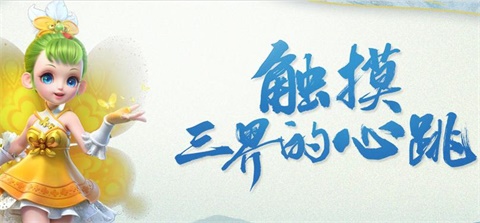 触摸
三界的心跳